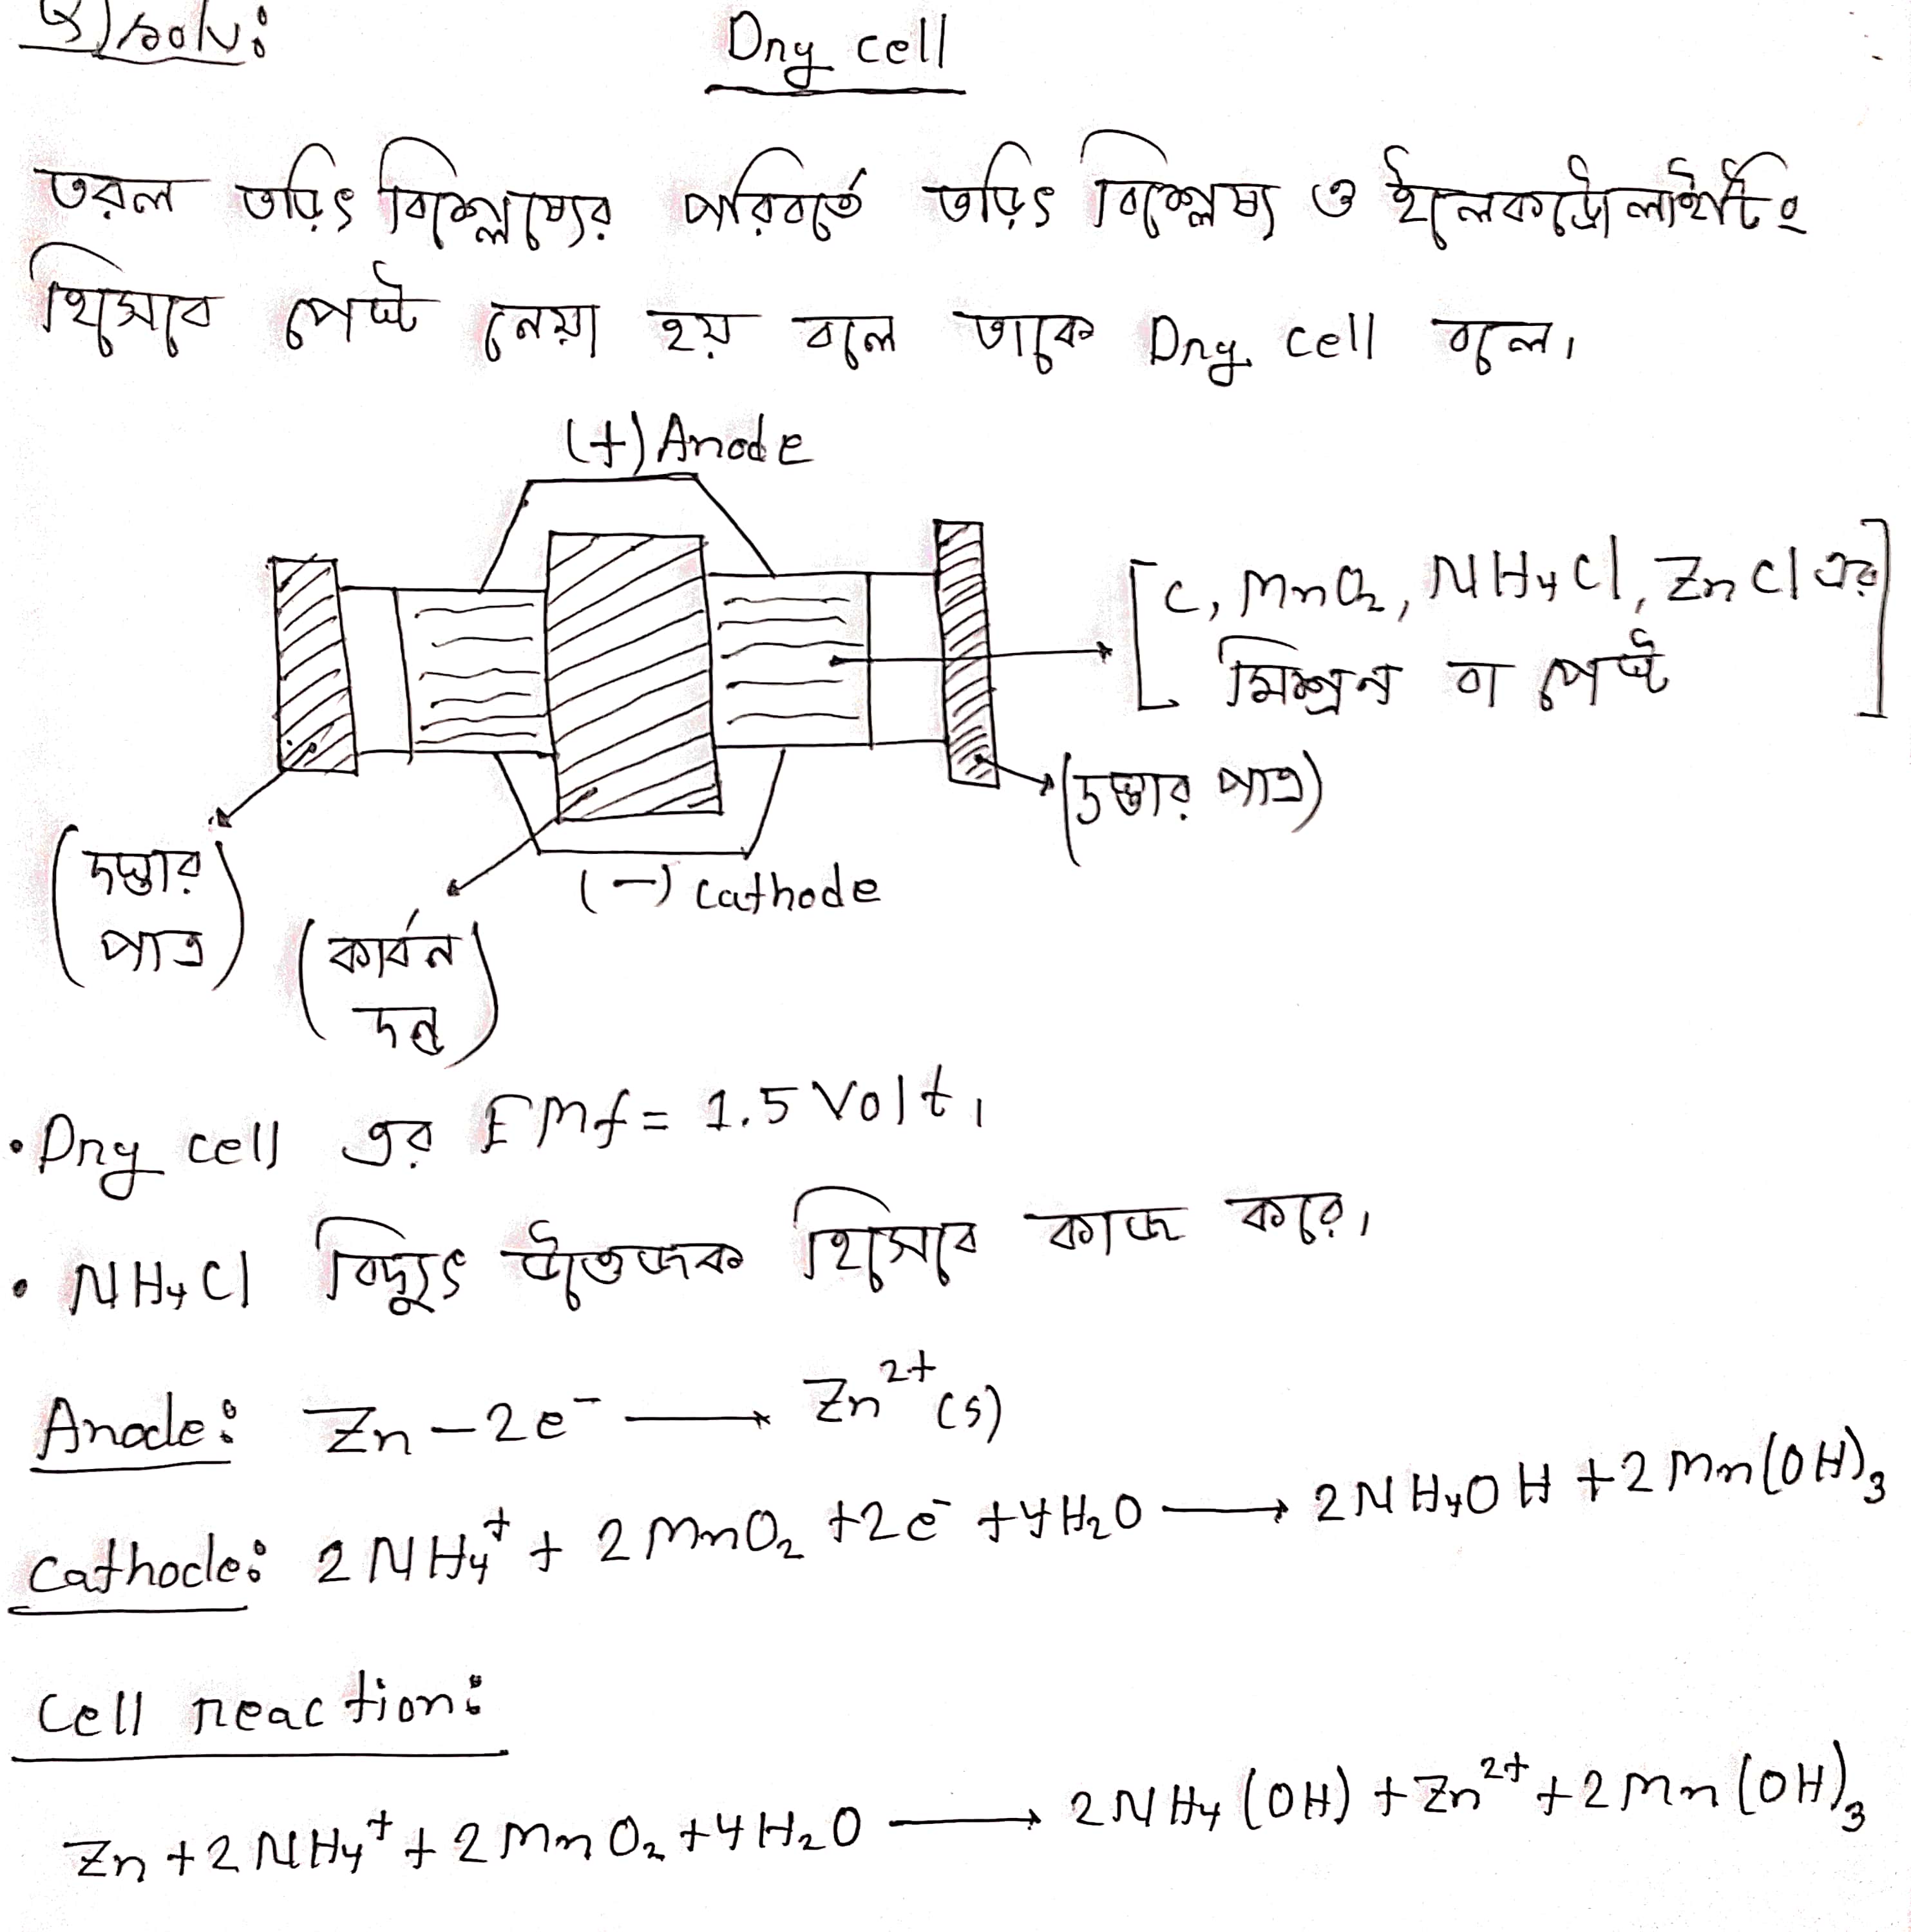 Solv:
Dry cell
তরল তড়িৎ বিশ্লেষ্যের পরিবর্তে তড়িৎ বিশ্লেষ্য ও ইলেকট্রোলাইটিং
হিসেবে পেস্ট নেয়া হয় বলে তাকে Dry cell বলে।
(+) Anode
[C, MnO₂, NH₄Cl, ZnCl এর
মিশ্রন বা পেস্ট]
(দস্তার পাত্র)
(দস্তার
পাত্র)
(-) Cathode
(কার্বন
দন্ড)
• Dry cell এর EMf = 1.5 Volt।
• NH₄Cl বিদ্যুৎ উত্তেজক হিসেবে কাজ করে।
Anode: Zn – 2e⁻ ⟶ Zn²⁺(s)
Cathode: 2NH₄⁺ + 2MnO₂ + 2e⁻ + 4H₂O ⟶ 2NH₄OH + 2Mn(OH)₃
Cell reaction:
Zn + 2NH₄⁺ + 2MnO₂ + 4H₂O ⟶ 2NH₄(OH) + Zn²⁺ + 2Mn(OH)₃